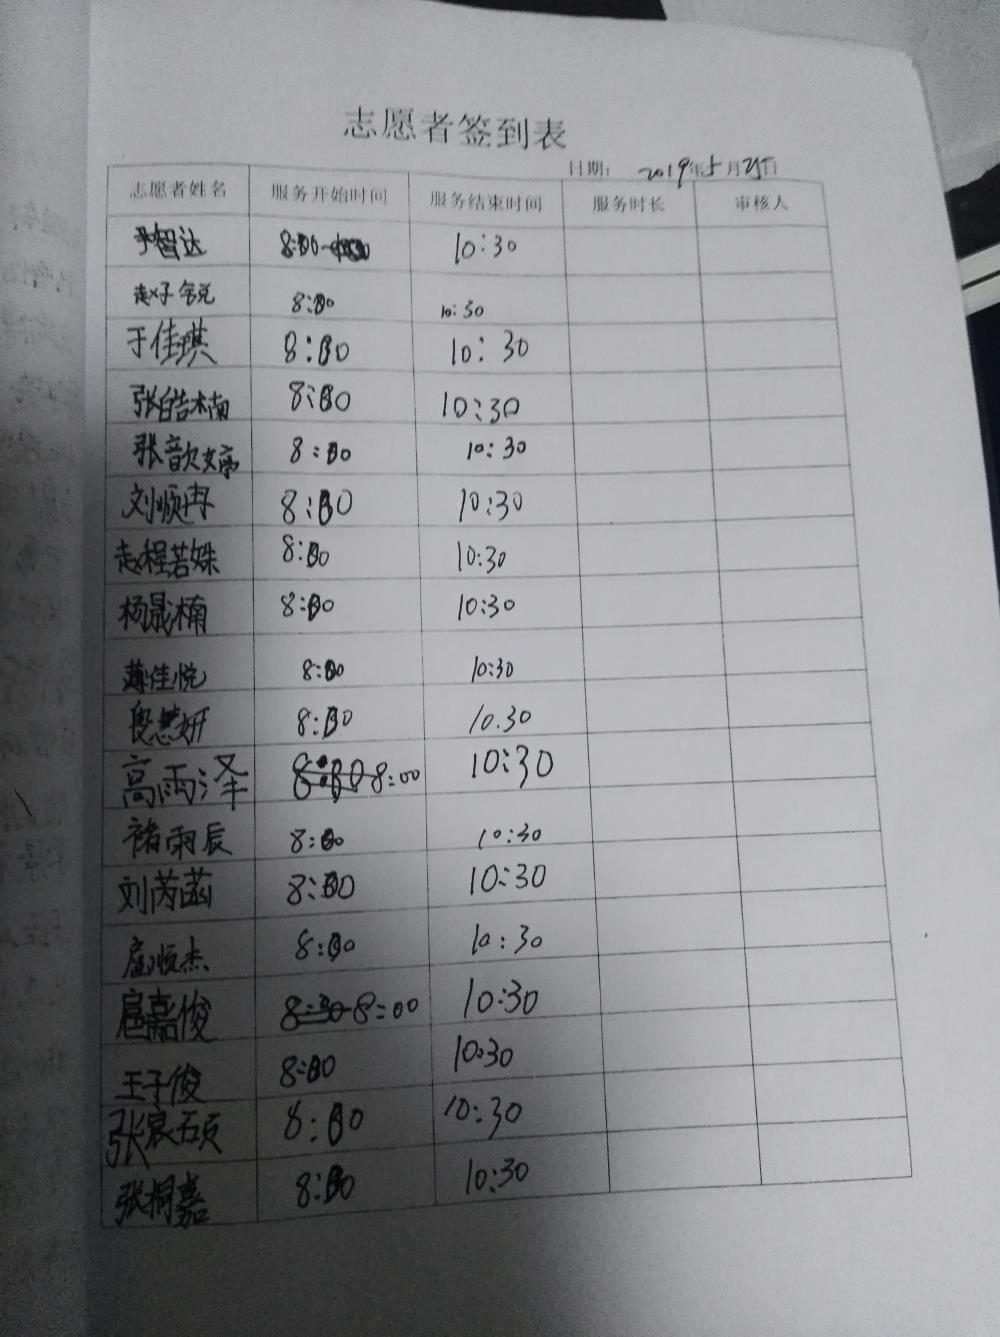 志愿者签到表
日期: 2019年5月25日
志愿者姓名 服务开始时间 服务结束时间 服务时长 审核人
尹智达 8:00 10:30
赵子锐 8:00 10:30
于佳琪 8:00 10:30
张皓楠 8:00 10:30
张歆婷 8:00 10:30
刘顺冉 8:00 10:30
赵程若姝 8:00 10:30
杨晟楠 8:00 10:30
薄佳悦 8:00 10:30
段慧妍 8:00 10.30
高雨泽 8:00 10:30
褚雨辰 8:00 10:30
刘芮菡 8:00 10:30
扈顺杰 8:00 10:30
扈嘉俊 8:00 10:30
王子俊 8:00 10:30
张宸硕 8:00 10:30
张桐嘉 8:00 10:30